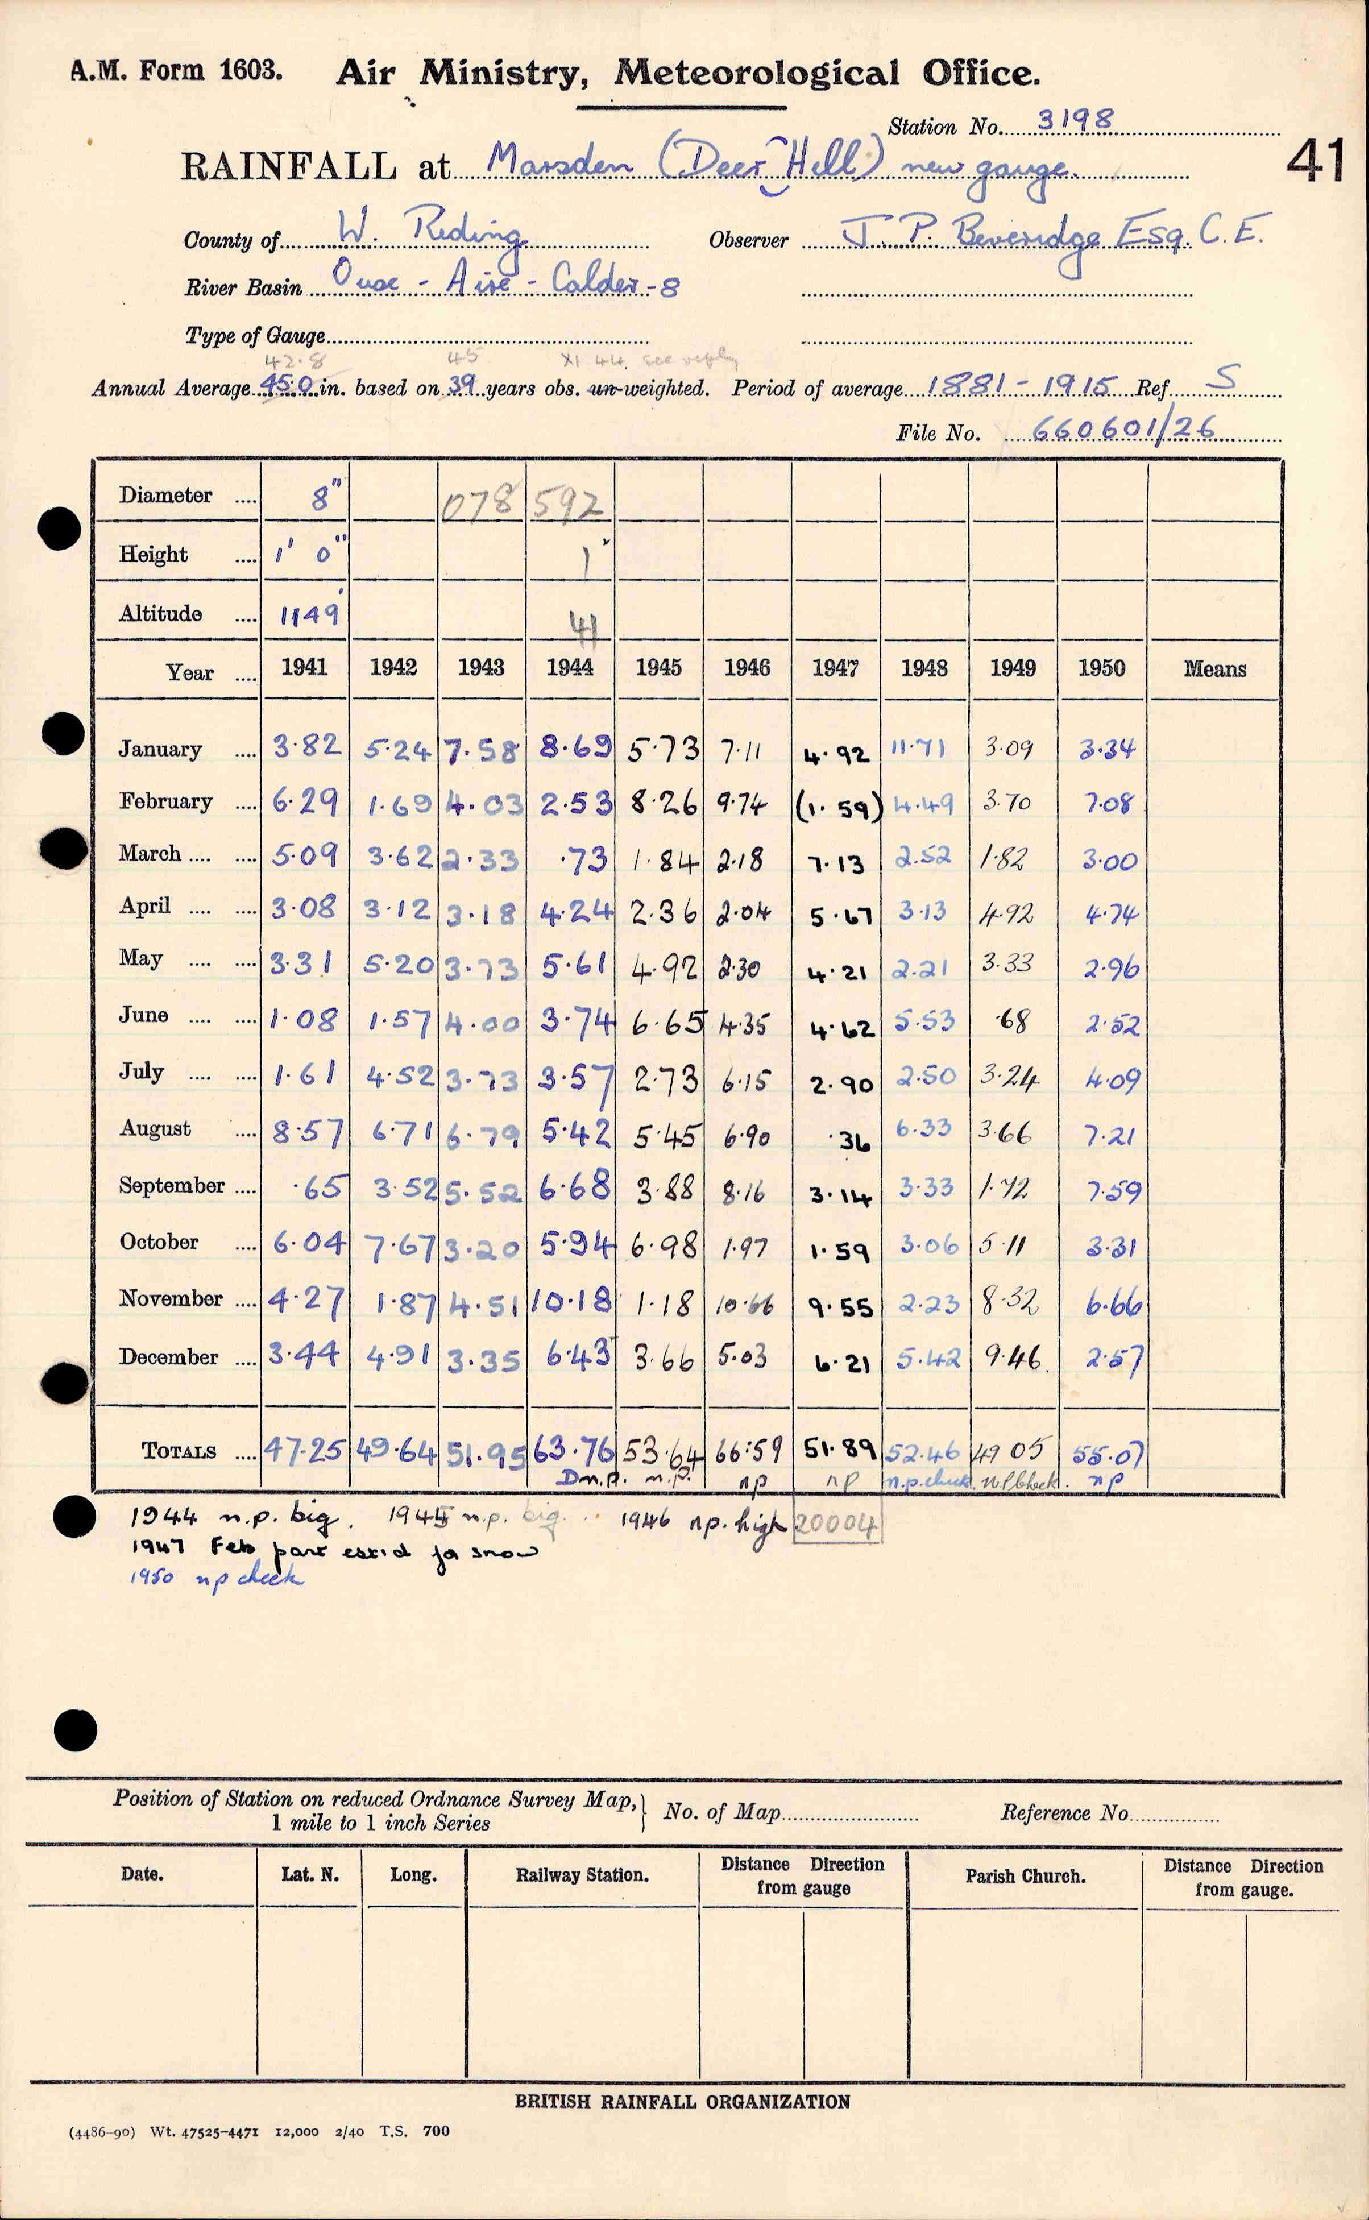 A.M. Form 1603. Air Ministry, Meteorological Office.
Station No. 3198
41
RAINFALL at Marsden (Deer Hill) new gauge.
County of W. Riding Observer J. P. Beveridge Esq. C.E.
River Basin Ouse - Aire - Calder - 8
Type of Gauge
42.8 45 XI 44. see reply
Annual Average 45.0 in. based on 39 years obs. un-weighted. Period of average 1881 - 1915 Ref. S
File No. 660601/26
Diameter .... 8" 078 592
Height .... 1' 0" 1"
Altitude .... 1149' 41
Year .... 1941 1942 1943 1944 1945 1946 1947 1948 1949 1950 Means
January .... 3.82 5.24 7.58 8.69 5.73 7.11 4.92 11.71 3.09 3.34
February .... 6.29 1.69 4.03 2.53 8.26 9.74 (1.59) 4.49 3.70 7.08
March .... .... 5.09 3.62 2.33 .73 1.84 2.18 7.13 2.52 1.82 3.00
April .... .... 3.08 3.12 3.18 4.24 2.36 2.04 5.67 3.13 4.92 4.74
May .... .... 3.31 5.20 3.73 5.61 4.92 2.30 4.21 2.21 3.33 2.96
June .... .... 1.08 1.57 4.00 3.74 6.65 4.35 4.62 5.53 .68 2.52
July .... .... 1.61 4.52 3.73 3.57 2.73 6.15 2.90 2.50 3.24 4.09
August .... 8.57 6.71 6.79 5.42 5.45 6.90 .36 6.33 3.66 7.21
September .... .65 3.52 5.52 6.68 3.88 8.16 3.14 3.33 1.72 7.59
October .... 6.04 7.67 3.20 5.94 6.98 1.97 1.59 3.06 5.11 3.31
November .... 4.27 1.87 4.51 10.18 1.18 10.66 9.55 2.23 8.32 6.66
December .... 3.44 4.91 3.35 6.43 3.66 5.03 6.21 5.42 9.46 2.57
TOTALS .... 47.25 49.64 51.95 63.76 53.64 66.59 51.89 52.46 49 05 55.07
Dn.p. n.p. np np n.p. check. np check. np
1944 n.p. big. 1945 n.p. big. 1946 np. high 20004
1947 Feb part est'd for snow
1950 np check
Position of Station on reduced Ordnance Survey Map,
1 mile to 1 inch Series
No. of Map Reference No.
Date. Lat. N. Long. Railway Station. Distance Direction from gauge Parish Church. Distance Direction from gauge.
BRITISH RAINFALL ORGANIZATION
(4486-90) Wt. 47525-4471 12,000 2/40 T.S. 700